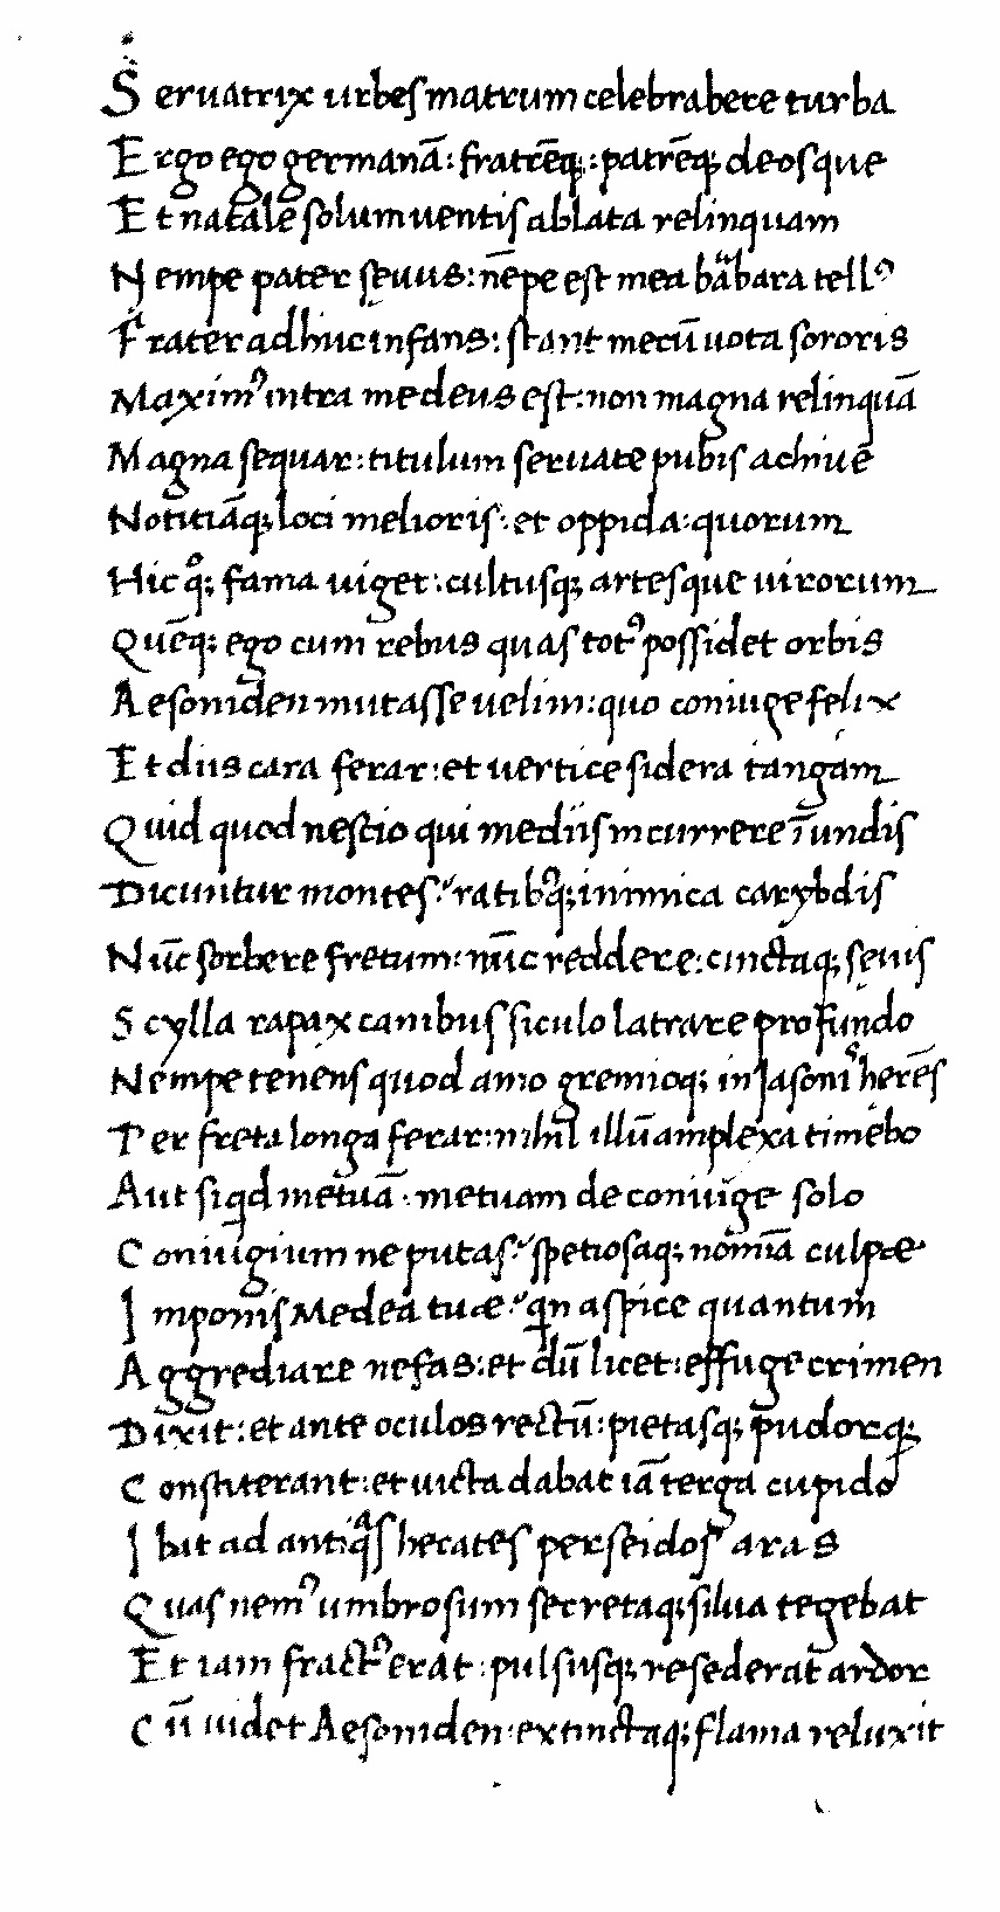 Seruatrix urbes matrum celebrabere turba
Ergo ego germanā: fratrēq;: patrēq; deosque
Et natale solum uentis ablata relinquam
Nempe pater sęuus: nēpe est mea barbara tellꝰ
Frater adhuc infans: stant mecū uota sororis
Maximꝰ intra me deus est: non magna relinquā
Magna sequar: titulum seruate pubis achiuę
Notitiāq; loci melioris: et oppida: quorum
Hic qͦ; fama uiget: cultusq; artesque uirorum
Quēq; ego cum rebus quas totꝰ possidet orbis
Aesoniden mutasse uelim: quo coniuge felix
Et diis cara ferar: et uertice sidera tangam
Quid quod nescio qui mediis incurrere ī undis
Dicuntur montes: ratibꝰq; inimica carybdis
Nūc sorbere fretum: nūc reddere: cinctaq; sęuis
Scylla rapax canibus siculo latrare profundo
Nempe tenens quod amo gremioq; in Jasonis hęrēs
Per freta longa ferar: nihil illū amplexa timebo
Aut siqd metuā: metuam de coniuge solo
Coniugium ne putas: spetiosaq; nomīa culpæ
Imponis Medea tuæ: qn aspice quantum
Aggrediare nefas: et dū licet: effuge crimen
Dixit: et ante oculos rectū: pietasq; pudorq;
Constiterant: et uicta dabat iā terga cupido
Ibat ad antiqᵃs hecates perseidos aras
Quas nemꝰ umbrosum secretaq; silua tegebat
Et iam fractꝰ erat: pulsusq; resederat ardor
Cū uidet Aesoniden: extinctaq; flama reluxit